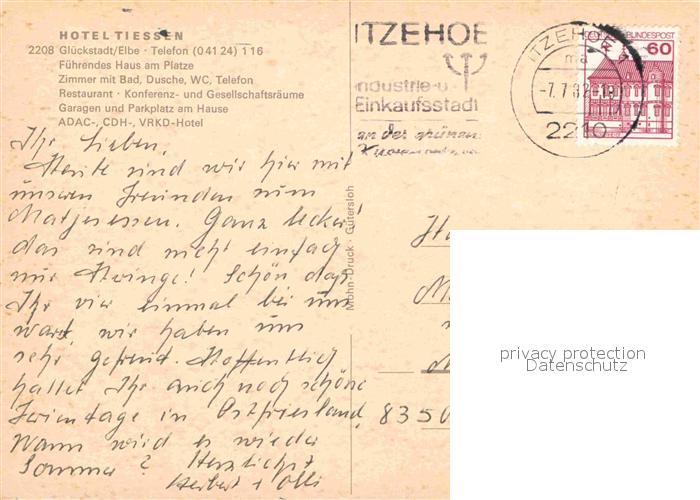 HOTEL TIESSEN
2208 Glückstadt/Elbe · Telefon (0 41 24) 1 16
Führendes Haus am Platze
Zimmer mit Bad, Dusche, WC, Telefon
Restaurant · Konferenz- und Gesellschaftsräume
Garagen und Parkplatz am Hause
ADAC-, CDH-, VRKD-Hotel
ITZEHOE
Industrie-u.
Einkaufsstadt
an der grünen
ITZEHOE
ma
-7.7.82
2210
DEUTSCHE BUNDESPOST
60
Ihr Lieben,
Heute sind wir hier mit
unseren Freunden zum
Matjesessen. Ganz lecker!
das sind nicht einfach
nur Heringe! Schön daß
Ihr vier einmal bei uns
wart, wir haben uns
sehr gefreut. Hoffentlich
hattet Ihr auch noch schöne
Ferientage in Ostfriesland.
Wann wird es wieder
Sommer? Herzlichst
Herbert + Olli
Mohn-Druck · Gütersloh
8350
privacy protection
Datenschutz